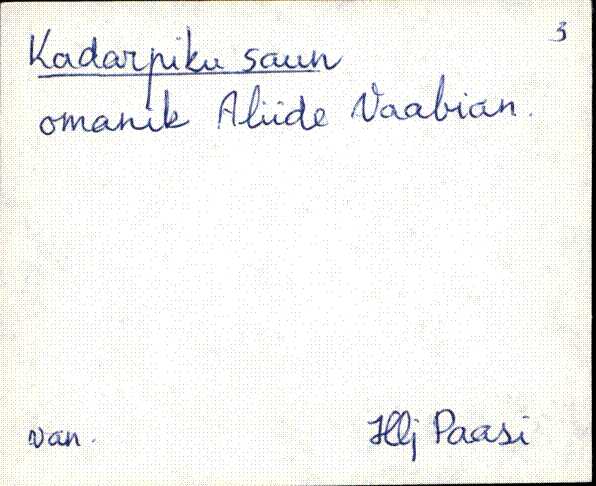 3
Kadarpiku saun
omanik Aliide Vaabian.
van.
Hlj Paasi